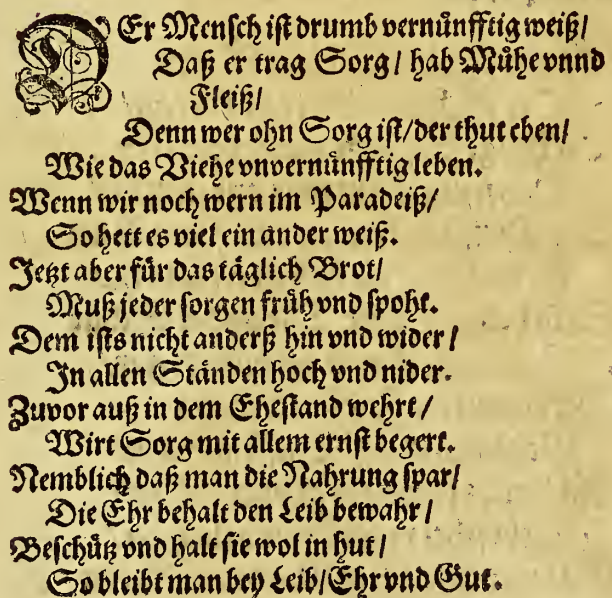 DEr Mensch ist drumb vernünfftig weiß/
Daß er trag Sorg/ hab Mühe vnnd
Fleiß/
Denn wer ohn Sorg ist/der thut eben/
Wie das Viehe vnvernünfftig leben.
Wenn wir noch wern im Paradeiß/
So hett es viel ein ander weiß.
Jetzt aber für das täglich Brot/
Muß jeder sorgen früh vnd spoht.
Dem ists nicht anderß hin vnd wider/
Jn allen Ständen hoch vnd nider.
Zuvor auß in dem Ehestand wehrt/
Wirt Sorg mit allem ernst begert.
Nemblich daß man die Nahrung spar/
Die Ehr behalt den Leib bewahr/
Beschütz vnd halt sie wol in hut/
So bleibt man bey Leib/Ehr vnd Gut.